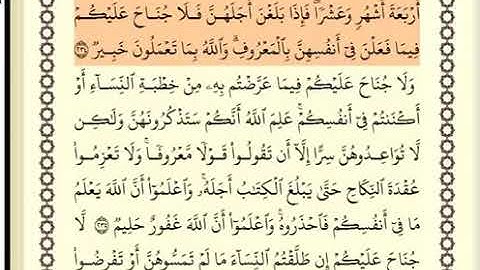 أَرْبَعَةَ أَشْهُرٍ وَعَشْرًا ۖ فَإِذَا بَلَغْنَ أَجَلَهُنَّ فَلَا جُنَاحَ عَلَيْكُمْ
فِيمَا فَعَلْنَ فِىٓ أَنفُسِهِنَّ بِٱلْمَعْرُوفِ ۗ وَٱللَّهُ بِمَا تَعْمَلُونَ خَبِيرٌ ۝٢٣٤
وَلَا جُنَاحَ عَلَيْكُمْ فِيمَا عَرَّضْتُم بِهِۦ مِنْ خِطْبَةِ ٱلنِّسَآءِ أَوْ
أَكْنَنتُمْ فِىٓ أَنفُسِكُمْ ۚ عَلِمَ ٱللَّهُ أَنَّكُمْ سَتَذْكُرُونَهُنَّ وَلَـٰكِن
لَّا تُوَاعِدُوهُنَّ سِرًّا إِلَّآ أَن تَقُولُوا۟ قَوْلًا مَّعْرُوفًا ۚ وَلَا تَعْزِمُوا۟
عُقْدَةَ ٱلنِّكَاحِ حَتَّىٰ يَبْلُغَ ٱلْكِتَـٰبُ أَجَلَهُۥ ۚ وَٱعْلَمُوٓا۟ أَنَّ ٱللَّهَ يَعْلَمُ
مَا فِىٓ أَنفُسِكُمْ فَٱحْذَرُوهُ ۚ وَٱعْلَمُوٓا۟ أَنَّ ٱللَّهَ غَفُورٌ حَلِيمٌ ۝٢٣٥ لَّا
جُنَاحَ عَلَيْكُمْ إِن طَلَّقْتُمُ ٱلنِّسَآءَ مَا لَمْ تَمَسُّوهُنَّ أَوْ تَفْرِضُوا۟